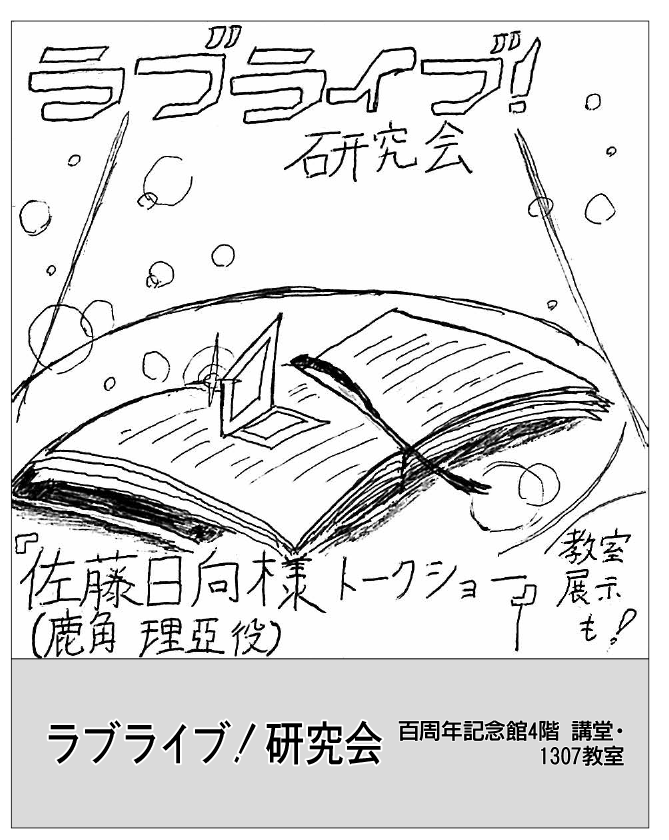 ラブライブ!
研究会
『佐藤日向様トークショー』
(鹿角 理亞役)
教室
展示
も!
ラブライブ!研究会
百周年記念館4階 講堂・
1307教室